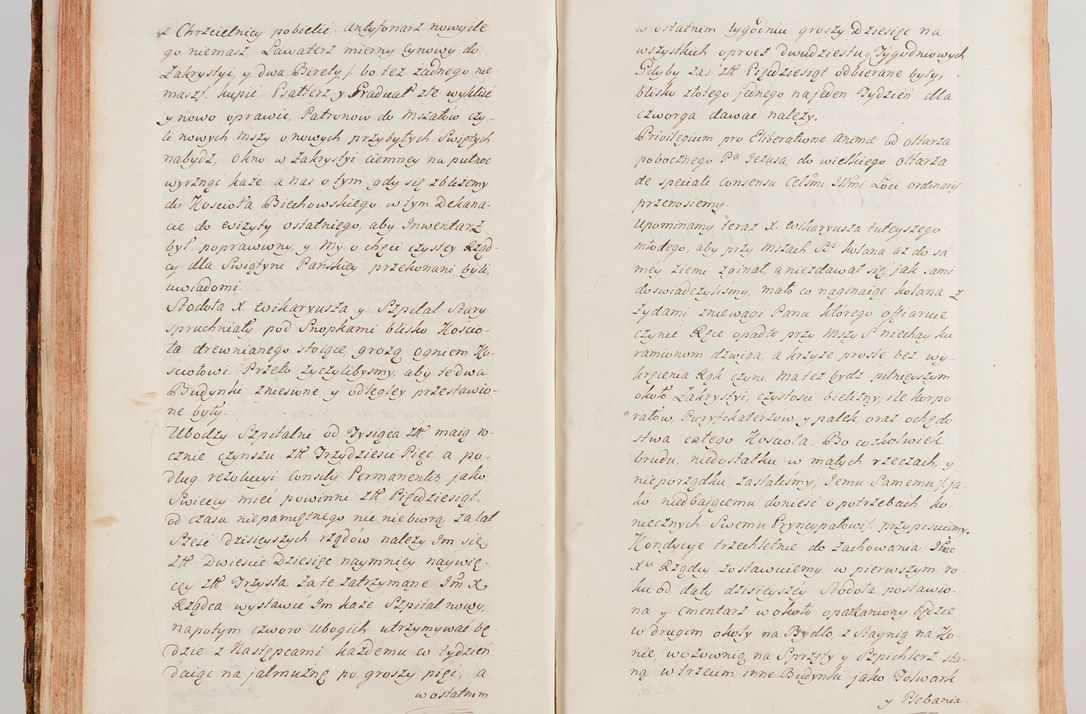 z Chrzcielnicy pobielić. Antyfonarz nowy ile
go niemasz. Lawaterz mierny cynowy do
Zakrystyi, y dwa Birety /: bo też żadnego nie
masz /: kupić Psałterz y Graduał złe wykleić
y nowo oprawić, Patronow do Mszałow czy-
li nowych Mszy o nowych przybyłych Swiętych
nabydź, okno w Zakrystyi ciemney na pułnoc
wyrznąć każe, a Nas o tym, gdy się zbliżemy
do Koscioła Biechowskiego w tym Dekana-
cie do wizyty ostatniego, aby Inwentarz
był poprawiony, y My o chęci czystey Rząd-
cy dla Swiątyni Pańskiey przekonani byli,
uwiadomi.
Stodoła X. Wikaryusza y Szpital Stary
spruchniały pod Snopkami blisko Koscio-
ła drewnianego stoiące, grożą ogniem Ko-
sciołowi. Przeto życzylibysmy, aby te dwa
Budynki zniesione y odległey przestawio-
ne były.
Ubodzy Szpitalni od Tysiąca złł maią ro-
cznie czynszu złł Trzydziesci Pięć, a po-
dług rezolucyi Consilij Permanentis, jako
Swieccy mieć powinni złł Pięcdziesiąt.
od czasu niepamiętnego nic niebiorą, za lat
Szesć dzisieyszych rządow należy Im się
złł Dwiescie Dziesięć naymniey naywię-
cey złł Trzysta. za te zatrzymane Im X
Rządca wystawić Im każe Szpital nowy,
na potym czworo Ubogich utrzymywać bę-
dzie z Następcami każdemu co tydzień
daiąc na jałmużnę po groszy pięć, a
w ostatnim
w ostatnim tygodniu groszy dziesięć na
wszystkich oprocz dwudziestu Tygodniowych
Gdyby zas złł Pięćdziesiąt odbierane były,
blisko złotego jednego na jeden Tydzień dla
czworga dawać należy.
Privilegium pro Eliberatione Animæ od ołtarza
pobocznego Pa Jezusa do wielkiego ołtarza
de speciali consensu Celsmi Illmi Loci ordinarij
przenosiemy.
Upominamy teraz X. Wikaryusza tuteyszego
młodego, aby przy Mszach Sch kolana aż do sa-
mey ziemi zginał, a niezdawał się, jak sami
doswiadczylismy, mało co naginaiąc kolana z
Żydami zniewagi Panu ktorego ofiaruie
czynić Ręce opadłe przy Mszy S niechay ku
ramionom dzwiga, a krzyże proste bez wy-
kręcenia Rąk czyni. Ma też bydź pilnieyszym
około Zakrystyi, czystosci bielizny, ile korpo-
rałow, Puryfikaterzow y palek, oraz ochędo-
stwa całego Kosciola. Bo cożkolwiek
brudu, niedostatku w małych rzeczach, y
nieporządku zastalismy, Jemu Samemu /: ja-
ko niedbaiącemu donieść o potrzebach ko-
niecznych Swemu Pryncypałowi /: przypisuiemy.
Kondycye trzechletnie do zachowania Imc
Xu Rządcy zostawuiemy, w pierwszym ro-
ku od daty dzisieyszey Stodoła postawio-
na y cmentarz w około oparkaniony będzie
w drugim obory na Bydło, z Staynią na Ko-
nie, wozownią na Sprzęty y Szpichlerz sta-
ną w trzecim inne Budynki jako Folwark
y Plebania